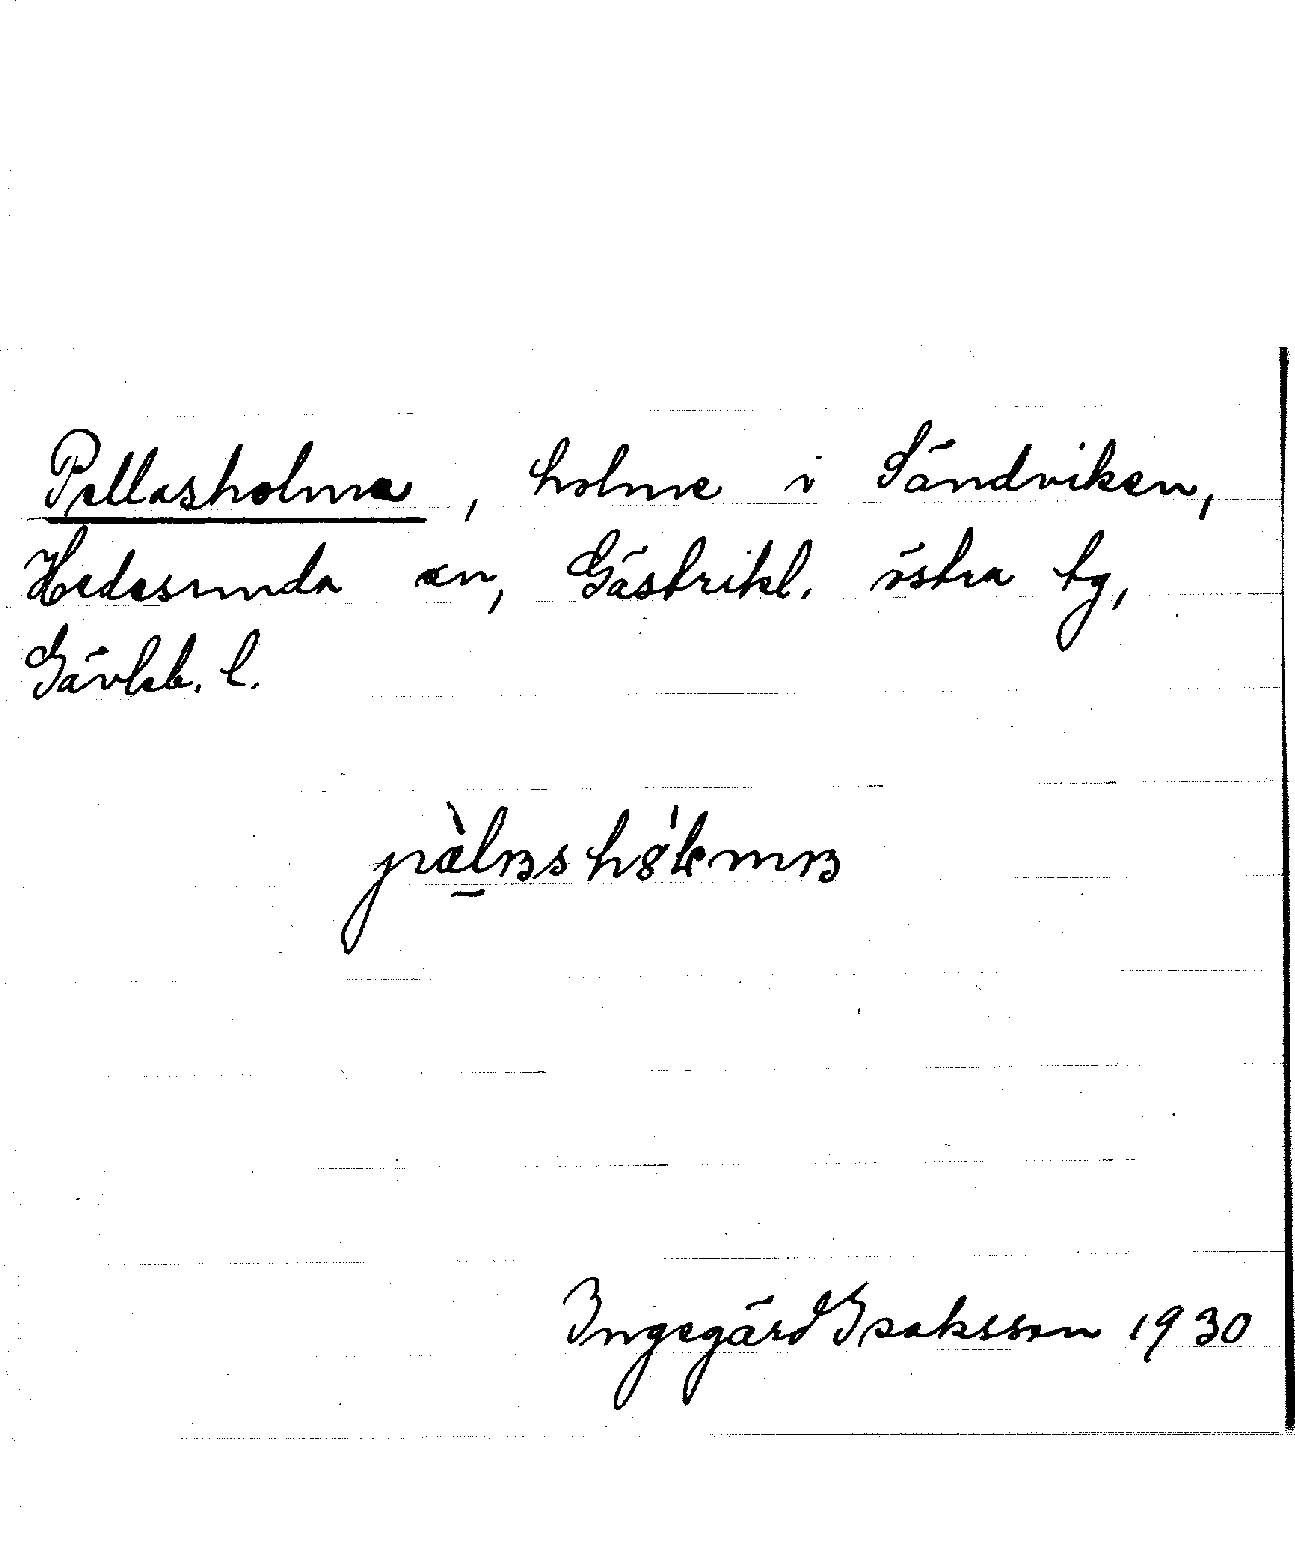 Pellasholma, holme i Sändviken,
Hedesunda sn, Gästrikl. östra tg,
Gävleb. l.
Ingegärd Isaksson 1930